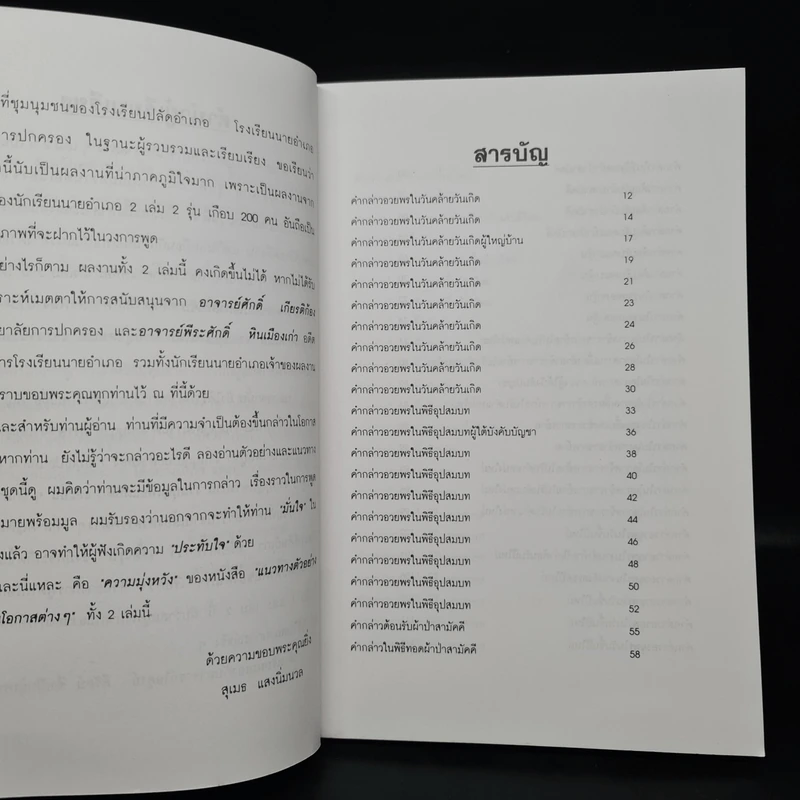 ที่ชุมนุมชนของโรงเรียนปลัดอำเภอ โรงเรียนนายอำเภอ
การปกครอง ในฐานะผู้รวบรวมและเรียบเรียง ขอเรียนว่า
นี้นับเป็นผลงานที่น่าภาคภูมิใจมาก เพราะเป็นผลงานจาก
องนักเรียนนายอำเภอ 2 เล่ม 2 รุ่น เกือบ 200 คน อันถือเป็น
ภาพที่จะฝากไว้ในวงการพูด
ย่างไรก็ตาม ผลงานทั้ง 2 เล่มนี้ คงเกิดขึ้นไม่ได้ หากไม่ได้รับ
ราะห์เมตตาให้การสนับสนุนจาก อาจารย์ศักดิ์ เกียรติก้อง
ยาลัยการปกครอง และอาจารย์พีระศักดิ์ หินเมืองเก่า อดีต
การโรงเรียนนายอำเภอ รวมทั้งนักเรียนนายอำเภอเจ้าของผลงาน
ราบขอบพระคุณทุกท่านไว้ ณ ที่นี้ด้วย
ละสำหรับท่านผู้อ่าน ท่านที่มีความจำเป็นต้องขึ้นกล่าวในโอกาส
หากท่าน ยังไม่รู้ว่าจะกล่าวอะไรดี ลองอ่านตัวอย่างและแนวทาง
ชุดนี้ดู ผมคิดว่าท่านจะมีข้อมูลในการกล่าว เรื่องราวในการพูด
มายพร้อมมูล ผมรับรองว่านอกจากจะทำให้ท่าน "มั่นใจ" ใน
งแล้ว อาจทำให้ผู้ฟังเกิดความ "ประทับใจ" ด้วย
และนี่แหละ คือ "ความมุ่งหวัง" ของหนังสือ "แนวทางตัวอย่าง
โอกาสต่าง ๆ" ทั้ง 2 เล่มนี้
ด้วยความขอบพระคุณยิ่ง
สุเมธ แสงนิ่มนวล
สารบัญ
คำกล่าวอวยพรในวันคล้ายวันเกิด 12
คำกล่าวอวยพรในวันคล้ายวันเกิด 14
คำกล่าวอวยพรในวันคล้ายวันเกิดผู้ใหญ่บ้าน 17
คำกล่าวอวยพรในวันคล้ายวันเกิด 19
คำกล่าวอวยพรในวันคล้ายวันเกิด 21
คำกล่าวอวยพรในวันคล้ายวันเกิด 23
คำกล่าวอวยพรในวันคล้ายวันเกิด 24
คำกล่าวอวยพรในวันคล้ายวันเกิด 26
คำกล่าวอวยพรในวันคล้ายวันเกิด 28
คำกล่าวอวยพรในวันคล้ายวันเกิด 30
คำกล่าวอวยพรในพิธีอุปสมบท 33
คำกล่าวอวยพรในพิธีอุปสมบทผู้ใต้บังคับบัญชา 36
คำกล่าวอวยพรในพิธีอุปสมบท 38
คำกล่าวอวยพรในพิธีอุปสมบท 40
คำกล่าวอวยพรในพิธีอุปสมบท 42
คำกล่าวอวยพรในพิธีอุปสมบท 44
คำกล่าวอวยพรในพิธีอุปสมบท 46
คำกล่าวอวยพรในพิธีอุปสมบท 48
คำกล่าวอวยพรในพิธีอุปสมบท 50
คำกล่าวอวยพรในพิธีอุปสมบท 52
คำกล่าวต้อนรับผ้าป่าสามัคคี 55
คำกล่าวในพิธีทอดผ้าป่าสามัคคี 58